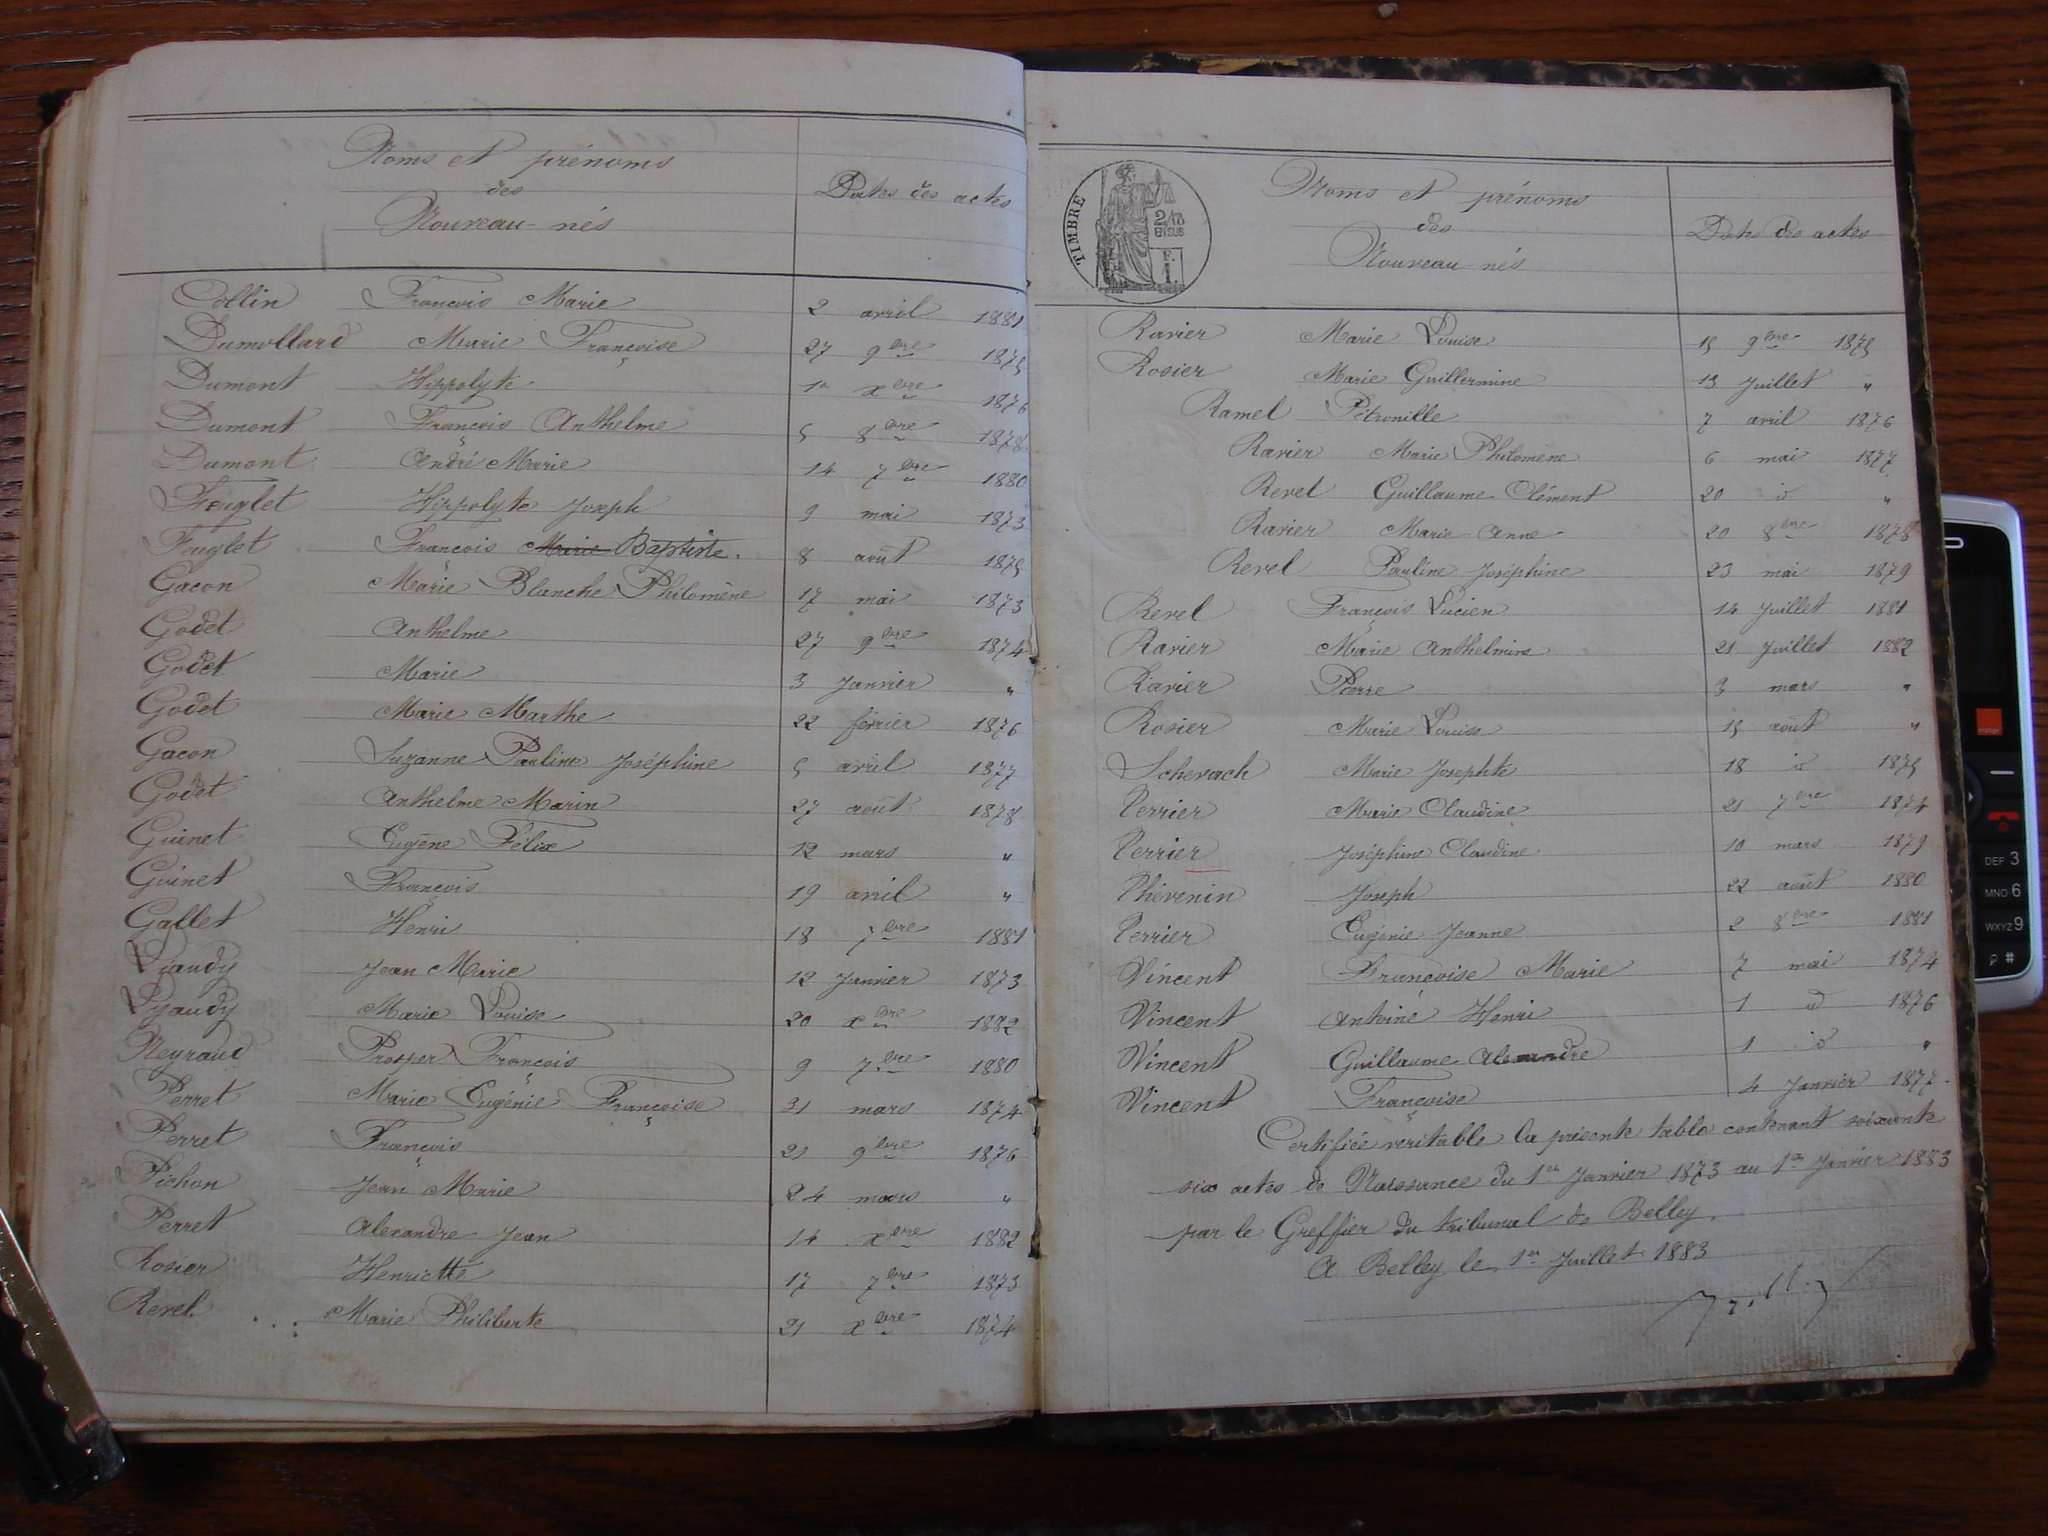 Noms et prénoms
des
Nouveau-nés
Dates des actes
Collin François Marie 2 avril 1881
Dumollard Marie Françoise 27 9bre 1875
Dumont Hippolyte 1er xbre 1876
Dumont François Anthelme 5 8bre 1878
Dumont André Marie 14 7bre 1880
Feuglet Hippolyte Joseph 9 mai 1873
Feuglet François Marie Baptiste. 8 août 1875
Gacon Marie Blanche Philomène 17 mai 1873
Godet Anthelme 27 9bre 1874
Godet Marie 3 Janvier "
Godet Marie Marthe 22 février 1876
Gacon Suzanne Pauline Joséphine 5 avril 1877
Godet Anthelme Marin 27 août 1878
Guinet Eugène Félix 12 mars "
Guinet François 19 avril "
Gallet Henri 18 7bre 1881
Jean Marie 12 Janvier 1873
Marie Louise 20 xbre 1882
Neyraud Prosper François 9 7bre 1880
Perret Marie Eugénie Françoise 31 mars 1874
Perret François 21 9bre 1876
Pichon Jean Marie 24 mars "
Perret Alexandre Jean 14 xbre 1882
Rosier Henriette 17 7bre 1873
Revel Marie Philiberte 21 xbre 1874
TIMBRE
2/10
EN SUS
F.
1
Noms et prénoms
des
Nouveau-nés
Dates des actes
Ravier Marie Louise 15 9bre 1875
Rosier Marie Guillermine 13 Juillet "
Ramel Pétronille 7 avril 1876
Ravier Marie Philomène 6 mai 1877
Revel Guillaume Clément 20 id "
Ravier Marie Anne 20 8bre 1878
Revel Pauline Joséphine 23 mai 1879
Revel François Lucien 14 Juillet 1881
Ravier Marie Anthelmine 21 Juillet 1882
Ravier Pierre 3 mars "
Rosier Marie Louise 15 août "
Schevach Marie Josephte 18 id 1875
Terrier Marie Claudine 21 7bre 1874
Terrier Joséphine Claudine 10 mars 1879
Thévenin Joseph 22 août 1880
Terrier Eugénie Jeanne 2 8bre 1881
Vincent Françoise Marie 7 mai 1874
Vincent Antoine Henri 1 id 1876
Vincent Guillaume Alexandre 1 id "
Vincent Françoise 4 Janvier 1877.
Certifiée véritable la présente table contenant soixante
six actes de Naissance du 1er Janvier 1873 au 1er Janvier 1883
par le Greffier du tribunal de Belley.
A Belley le 1er Juillet 1883
DEF 3
MNO 6
WXYZ 9
#